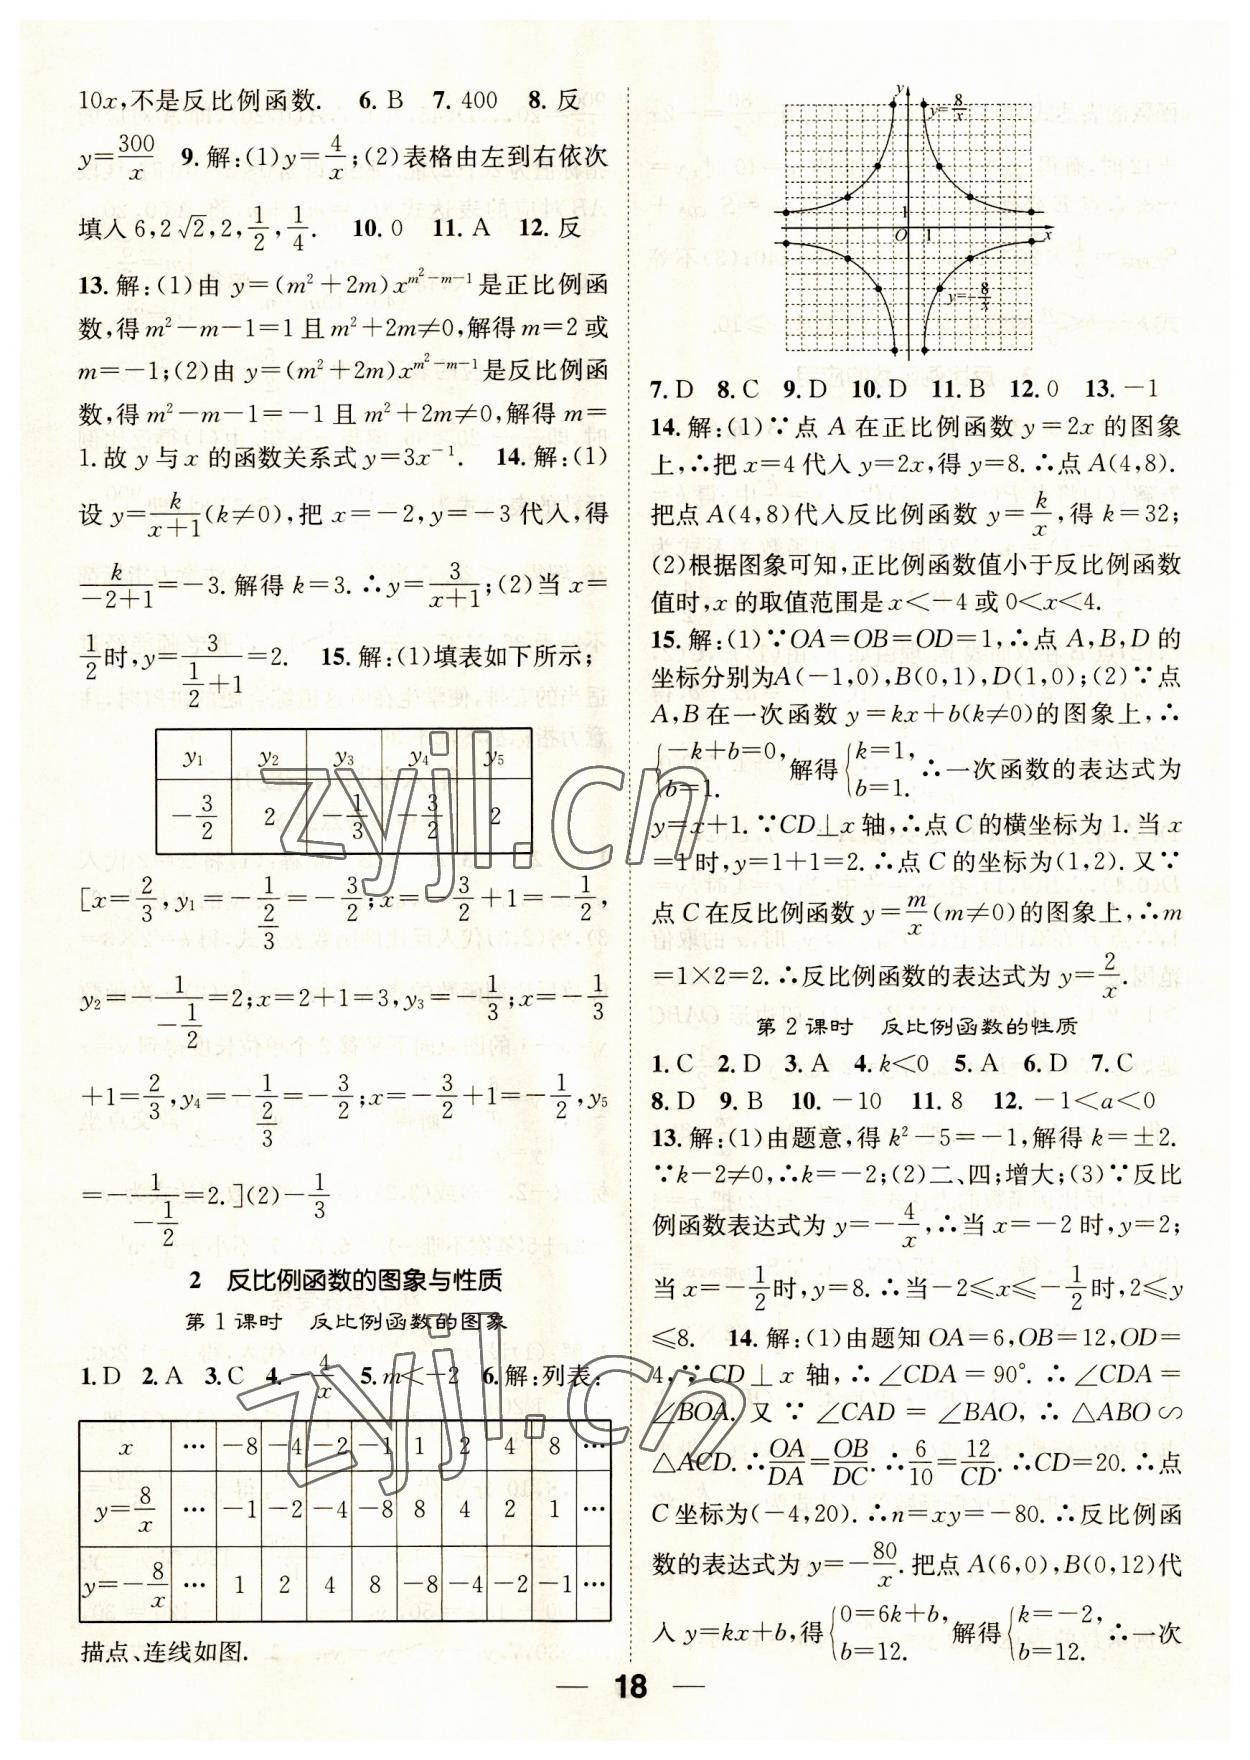 10x,不是反比例函数. 6. B 7. 400 8. 反
y=300/x 9. 解:(1)y=4/x;(2)表格由左到右依次
填入 6,2√2,2,1/2,1/4. 10. 0 11. A 12. 反
13. 解:(1)由 y=(m²+2m)x^(m²-m-1)是正比例函
数,得 m²-m-1=1 且 m²+2m≠0,解得 m=2 或
m=-1;(2)由 y=(m²+2m)x^(m²-m-1)是反比例函
数,得 m²-m-1=-1 且 m²+2m≠0,解得 m=
1. 故 y 与 x 的函数关系式 y=3x⁻¹. 14. 解:(1)
设 y=k/(x+1)(k≠0),把 x=-2,y=-3 代入,得
k/(-2+1)=-3. 解得 k=3. ∴y=3/(x+1);(2)当 x=
1/2时,y=3/(1/2+1)=2. 15. 解:(1)填表如下所示;
y₁ y₂ y₃ y₄ y₅
-3/2 2 -1/3 -3/2 2
[x=2/3,y₁=-1/(2/3)=-3/2;x=-3/2+1=-1/2,
y₂=-1/(-1/2)=2;x=2+1=3,y₃=-1/3;x=-1/3
+1=2/3,y₄=-1/(2/3)=-3/2;x=-3/2+1=-1/2,y₅
=-1/(-1/2)=2.](2)-1/3
2 反比例函数的图象与性质
第 1 课时 反比例函数的图象
1. D 2. A 3. C 4. -4/x 5. m<-2 6. 解:列表:
x … -8 -4 -2 -1 1 2 4 8 …
y=8/x … -1 -2 -4 -8 8 4 2 1 …
y=-8/x … 1 2 4 8 -8 -4 -2 -1 …
描点、连线如图.
y
y=8/x
1
O 1 x
y=-8/x
7. D 8. C 9. D 10. D 11. B 12. 0 13. -1
14. 解:(1)∵点 A 在正比例函数 y=2x 的图象
上,∴把 x=4 代入 y=2x,得 y=8. ∴点 A(4,8).
把点 A(4,8)代入反比例函数 y=k/x,得 k=32;
(2)根据图象可知,正比例函数值小于反比例函数
值时,x 的取值范围是 x<-4 或 0<x<4.
15. 解:(1)∵OA=OB=OD=1,∴点 A,B,D 的
坐标分别为A(-1,0),B(0,1),D(1,0);(2)∵点
A,B 在一次函数 y=kx+b(k≠0)的图象上,∴
{-k+b=0, b=1. 解得{k=1, b=1. ∴一次函数的表达式为
y=x+1. ∵CD⊥x 轴,∴点 C 的横坐标为 1. 当 x
=1 时,y=1+1=2. ∴点 C 的坐标为(1,2). 又∵
点 C 在反比例函数 y=m/x(m≠0)的图象上,∴m
=1×2=2. ∴反比例函数的表达式为 y=2/x.
第 2 课时 反比例函数的性质
1. C 2. D 3. A 4. k<0 5. A 6. D 7. C
8. D 9. B 10. -10 11. 8 12. -1<a<0
13. 解:(1)由题意,得 k²-5=-1,解得 k=±2.
∵k-2≠0,∴k=-2;(2)二、四;增大;(3)∵反比
例函数表达式为 y=-4/x,∴当 x=-2 时,y=2;
当 x=-1/2时,y=8. ∴当-2≤x≤-1/2时,2≤y
≤8. 14. 解:(1)由题知 OA=6,OB=12,OD=
4,∵CD⊥x 轴,∴∠CDA=90°. ∴∠CDA=
∠BOA. 又∵∠CAD=∠BAO,∴△ABO∽
△ACD. ∴OA/DA=OB/DC. ∴6/10=12/CD. ∴CD=20. ∴点
C 坐标为(-4,20). ∴n=xy=-80. ∴反比例函
数的表达式为 y=-80/x. 把点 A(6,0),B(0,12)代
入 y=kx+b,得{0=6k+b, b=12. 解得{k=-2, b=12. ∴一次
18
zyjl.cn
zyjl.cn